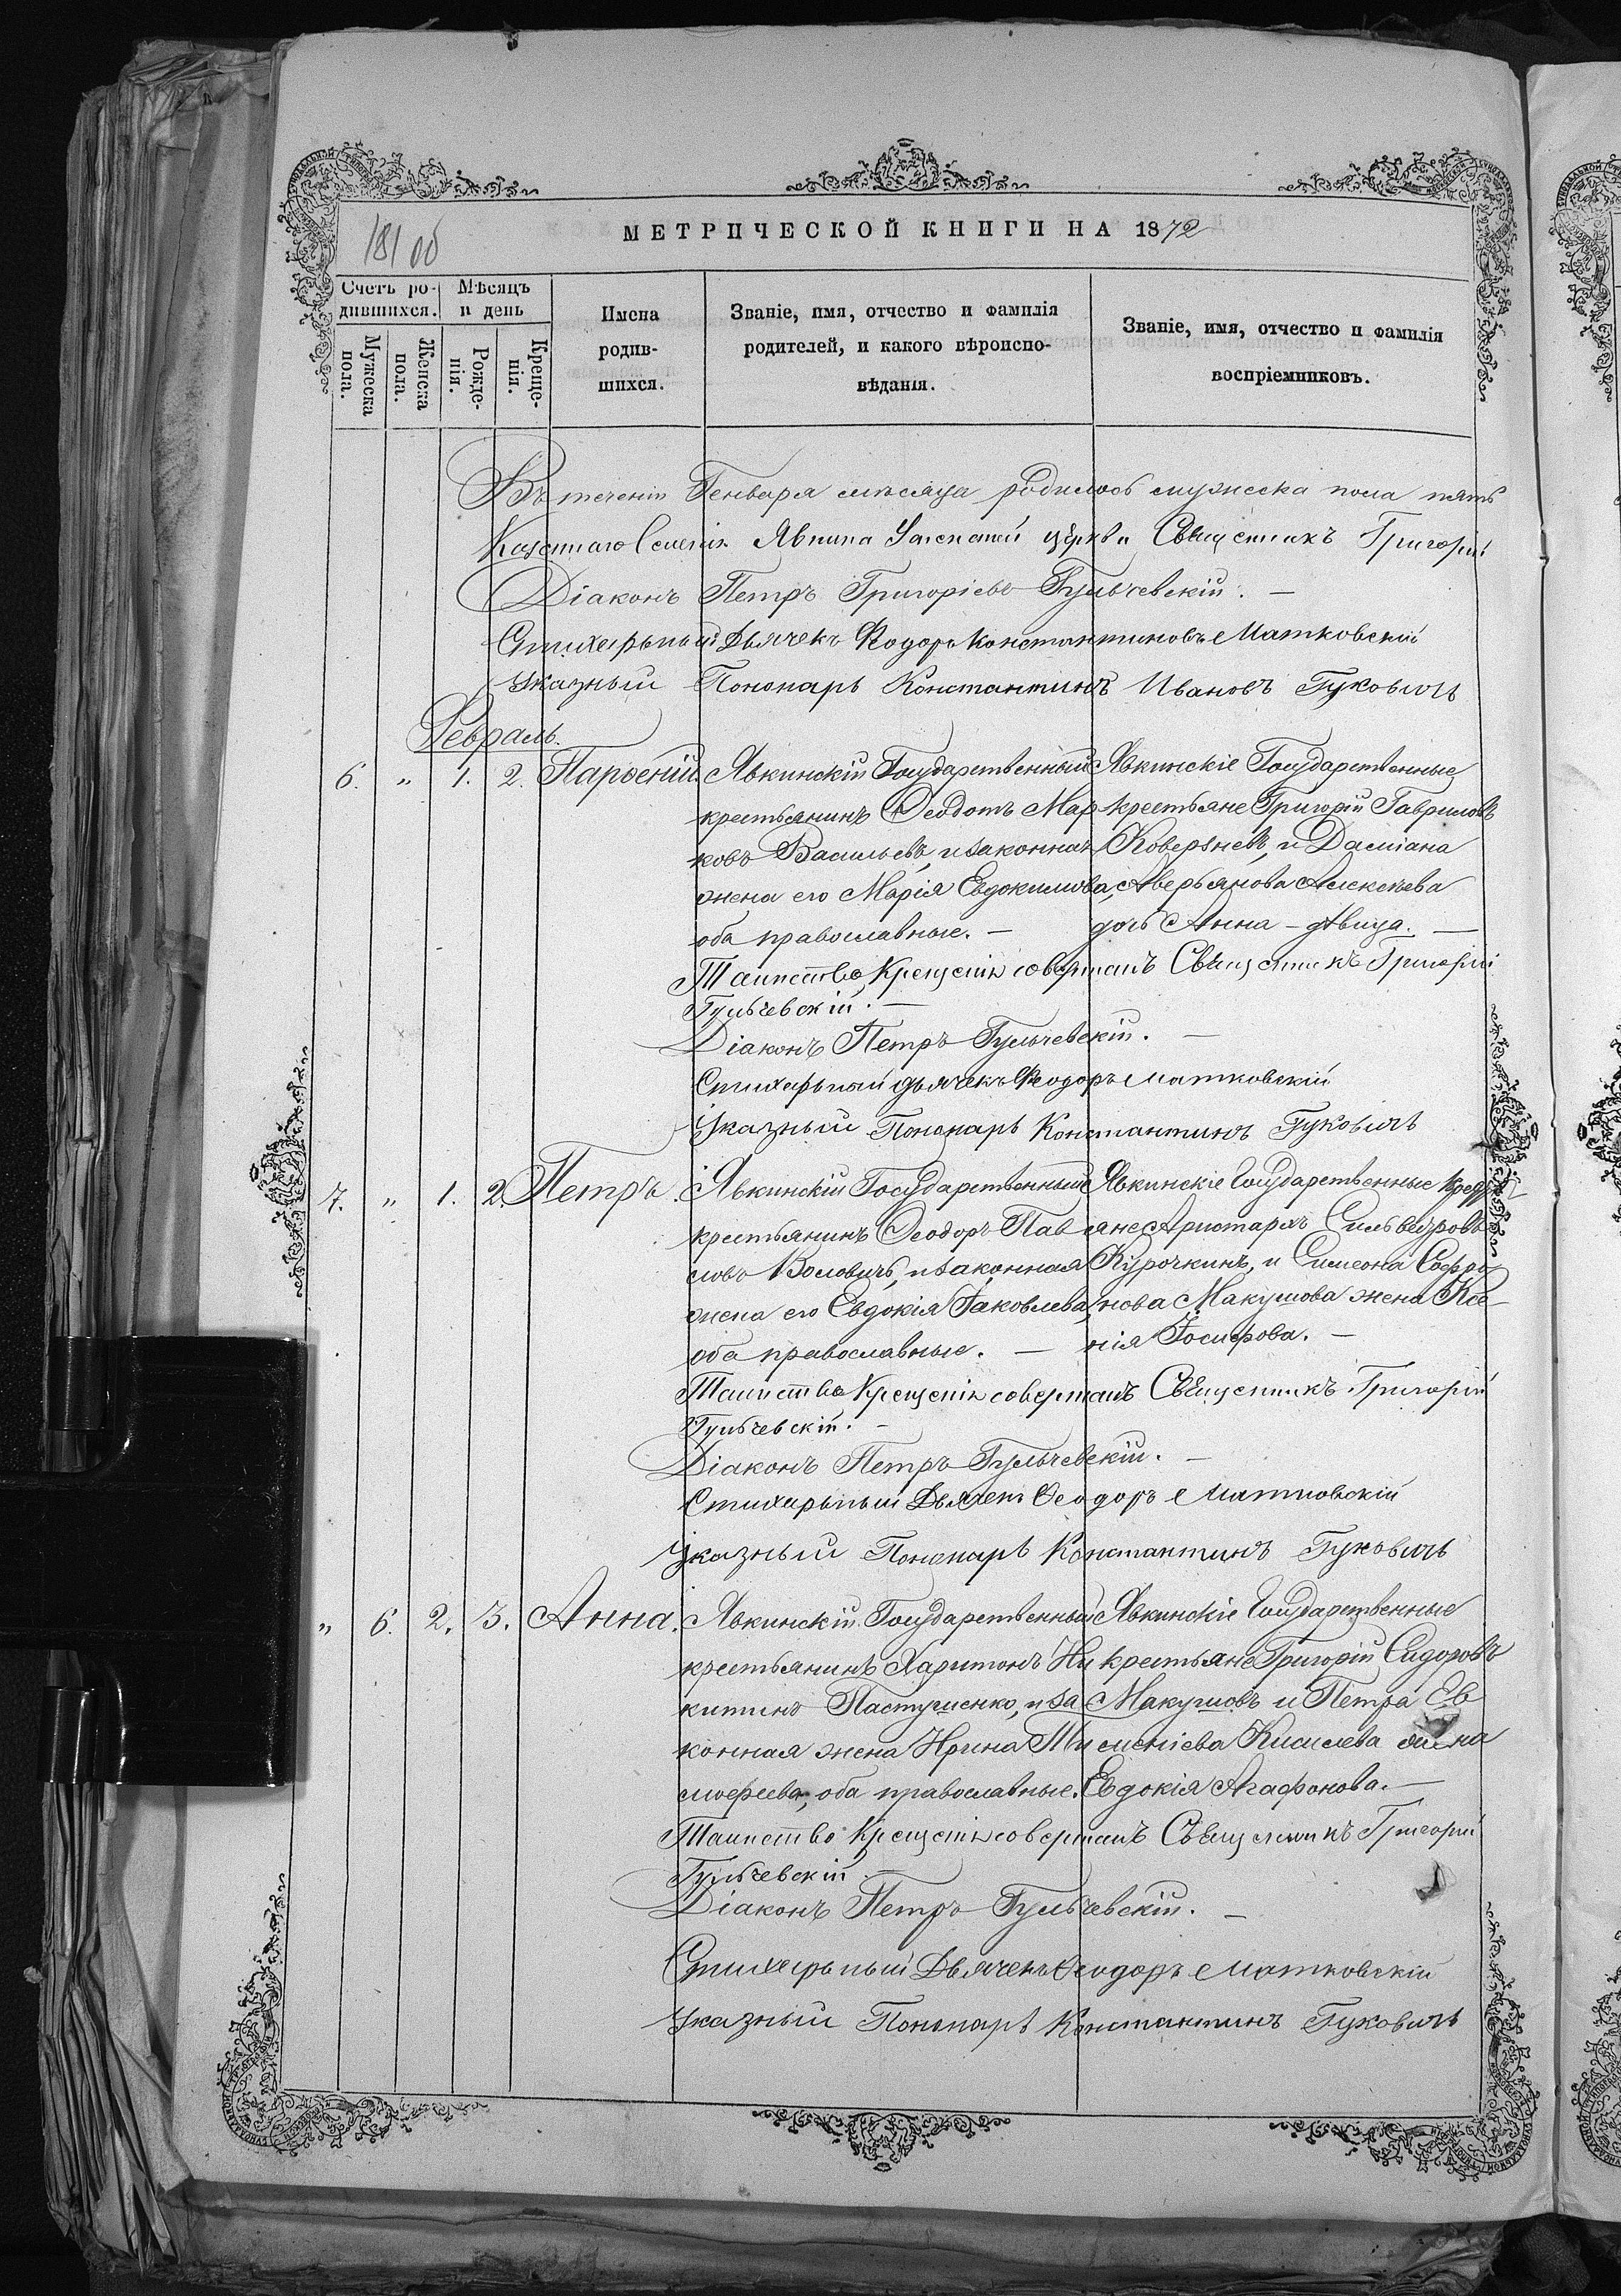 181 об
МЕТРИЧЕСКОЙ КНИГИ НА 1872
Счетъ ро-
дившихся.
Мужеска пола.
Женска пола.
Мѣсяцъ
и день
Рожде-
нія.
Креще-
нія.
Имена
родив-
шихся.
Званіе, имя, отчество и фамилія
родителей, и какого вѣроиспо-
вѣданія.
Званіе, имя, отчество и фамилія
воспріемниковъ.
Въ теченіи Генваря мѣсяца родилось мужеска пола пять
Казеннаго Селенія Явкина Успенской церкви Священникъ Григорій
Діаконъ Петръ Григорьевъ Гульчевскій. —
Стихарный Дьячекъ Ѳеодоръ Константиновъ Матковскій
Указный Пономарь Константинъ Ивановъ Гуковичъ
Февраль.
6. " 1. 2. Парѳеній.
Явкинскій Государственный
крестьянинъ Ѳеодотъ Мар
ковъ Васильевъ, и законная
жена его Марія Евдокимова,
оба православные. —
Явкинскіе Государственные
крестьяне Григорій Гавриловъ
Коверзневъ, и Даміана
Аверьянова Алексѣева
дочь Анна - дѣвица. —
Таинство Крещенія совершалъ Священникъ Григорій
Гульчевскій. —
Діаконъ Петръ Гульчевскій. —
Стихарный дьячекъ Ѳеодоръ Матковскій
Указный Пономарь Константинъ Гуковичъ
7. " 1. 2. Петръ.
Явкинскій Государственный
крестьянинъ Ѳеодоръ Пав
ловъ Воловичъ, и законная
жена его Евдокія Іаковлева,
оба православные. —
Явкинскіе Государственные крест
яне Аристархъ Сильвестровъ
Курочкинъ, и Симеона Софро
нова Макушова жена Ксе-
нія Іосифова. —
Таинство Крещенія совершалъ Священникъ Григорій
Гульчевскій. —
Діаконъ Петръ Гульчевскій. —
Стихарный Дьячекъ Ѳеодоръ Матковскій
Указный Пономарь Константинъ Гуковичъ
" 6. 2. 3. Анна.
Явкинскій Государственный
крестьянинъ Харитонъ Ни
китинъ Пастушенко, и за
конная жена Ирина Ти
моѳеева, оба православные.
Явкинскіе Государственные
крестьяне Григорій Сидоровъ
Макушовъ и Петра Ев
сеніева Киселева жена
Евдокія Агафонова. —
Таинство Крещенія совершалъ Священникъ Григорій
Гульчевскій
Діаконъ Петръ Гульчевскій. —
Стихарный Дьячекъ Ѳеодоръ Матковскій
Указный Пономарь Константинъ Гуковичъ